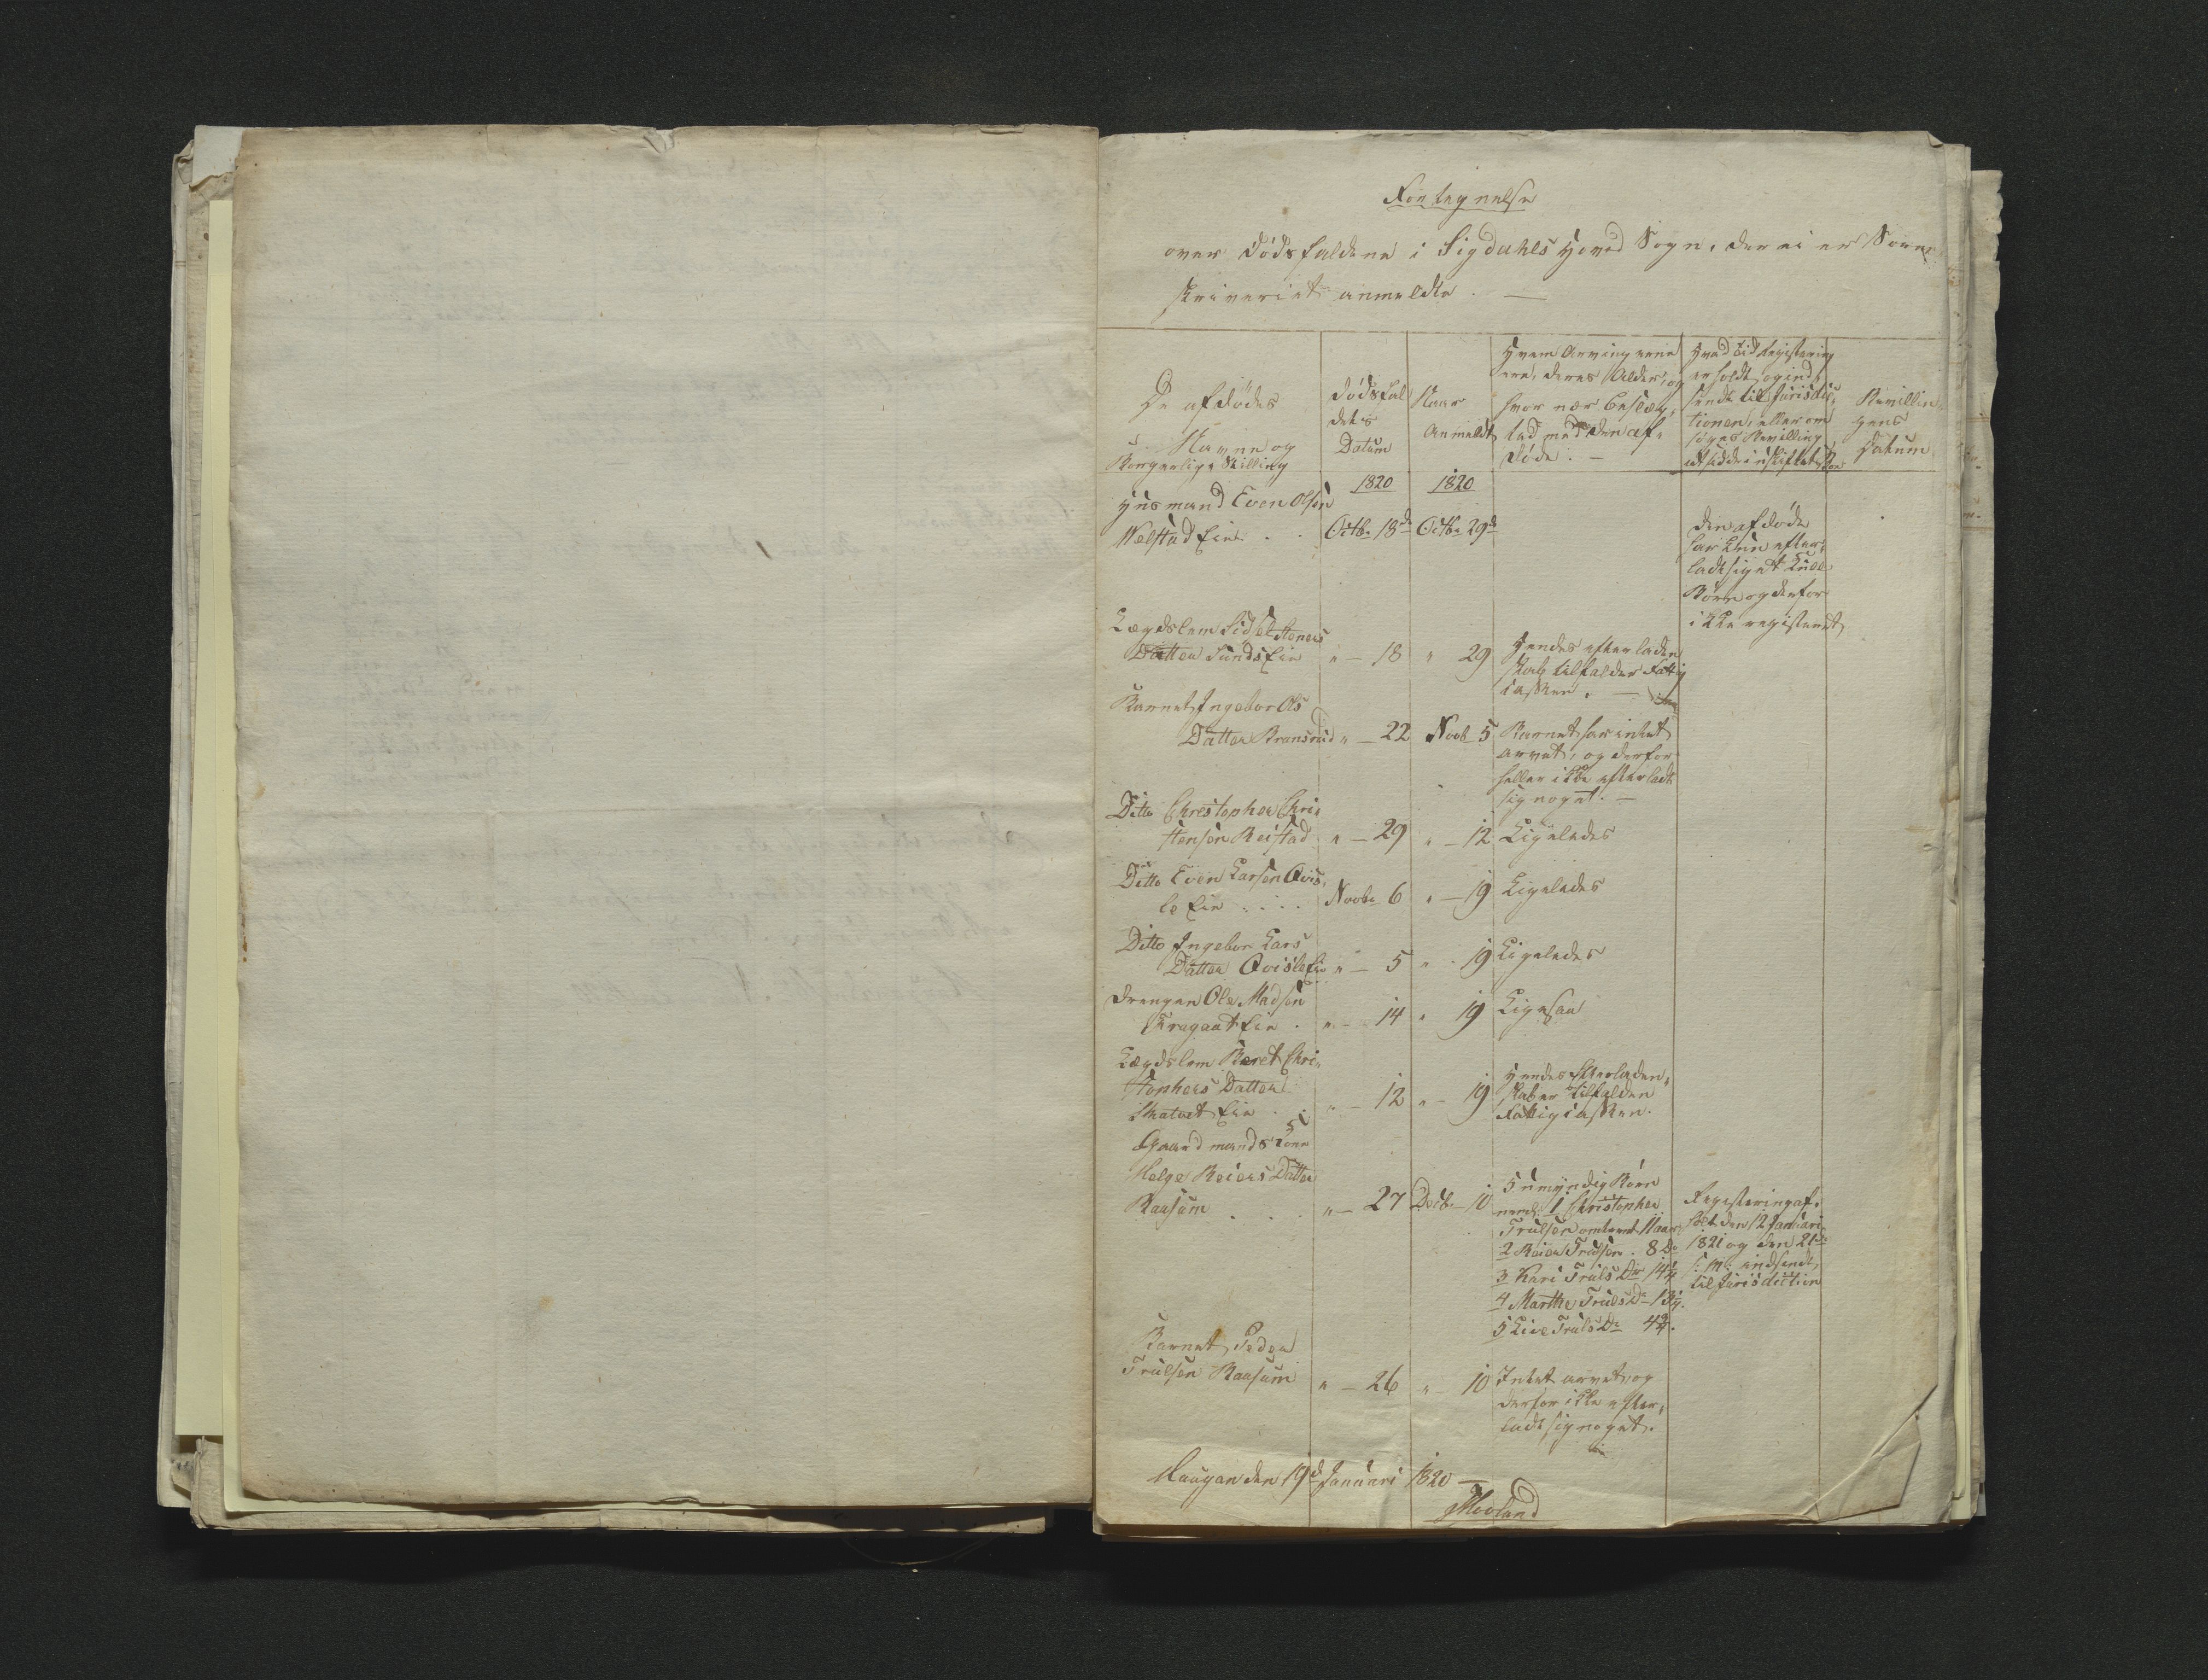 Fortegnelse
over Dödsfaldene i Sigdahls Hoved Sogn, der ei er Soren
skriveriet anmeldte. —
De afdödes
Navne og
Borgerlige Stilling
Dödsfal
dets
Datum
Naar
Anmeldt
Hvem Arvingerne
ere, deres Alder, og
hvor nær beslæg,
ted med den af,
döde. —
Hvad Tid Registering
er holdt og ind,
sendt til Jurisdic,
tionen, eller om
söges Bevilling
at sidde i uskiftet Boe
Bevillin,
gens
Datum
1820
1820
Husmand Even Olsen
Nælstad Eie . .
Octbr 18de
Octbr 29de
den afdöde
har kun efter,
ladt sig et Kuld
Börn og derfor
ikke registeret
Lægdslem Sidsel Steners
Datter Lunds Eie
" — 18
" 29
Hendes efterladen
skab tilfalder Fattig
cassen. —
Barnet Ingebor Ols
Datter Brunsrud
" — 22
Novb 5
Barnet har intet
arvet, og derfor
heller ikke efterladt
sig noget. —
Ditto Christopher Chri,
stensen Reistad
" — 29
" — 12
Ligeledes
Ditto Even Larsen Qvis,
le Eie . . . .
Novbr 6
" — 19
Ligeledes
Ditto Ingebor Lars
Datter Qvisle Eie
" — 5
" - 19
Ligeledes
Drengen Ole Madsen
Kragaat Eie .
" — 14
" 19
Ligesaa
Lægdslem Beret Chri,
stophers Datter
Skatvet Eie . .
" — 12
" — 19
Hendes Efterladen,
skaber tilfalder
Fattigcassen.
Gaardmands Kone
Helge Reiers Datter
Raasum . . .
" — 27
Decbr 10
5 umyndig Börn
neml: 1 Christopher
Trulsen omtrent 11 aar
2 Reier Trulsen . 8 Do
3 Kari Truls Dr 14¼
4 Marthe Truls Dr 13¼.
5 Live Truls Dr 4¾.
Registering af,
holdt den 12 Januari
1821 og den 21de
s: M: indsendt,
til Jurisdiction
Barnet Peder
Trulsen Raasum
" — 26
" — 10
Intet arvet, og
derfor ikke efter,
ladt sig noget.
Haugan den 19de Januari 1820 —
Movland